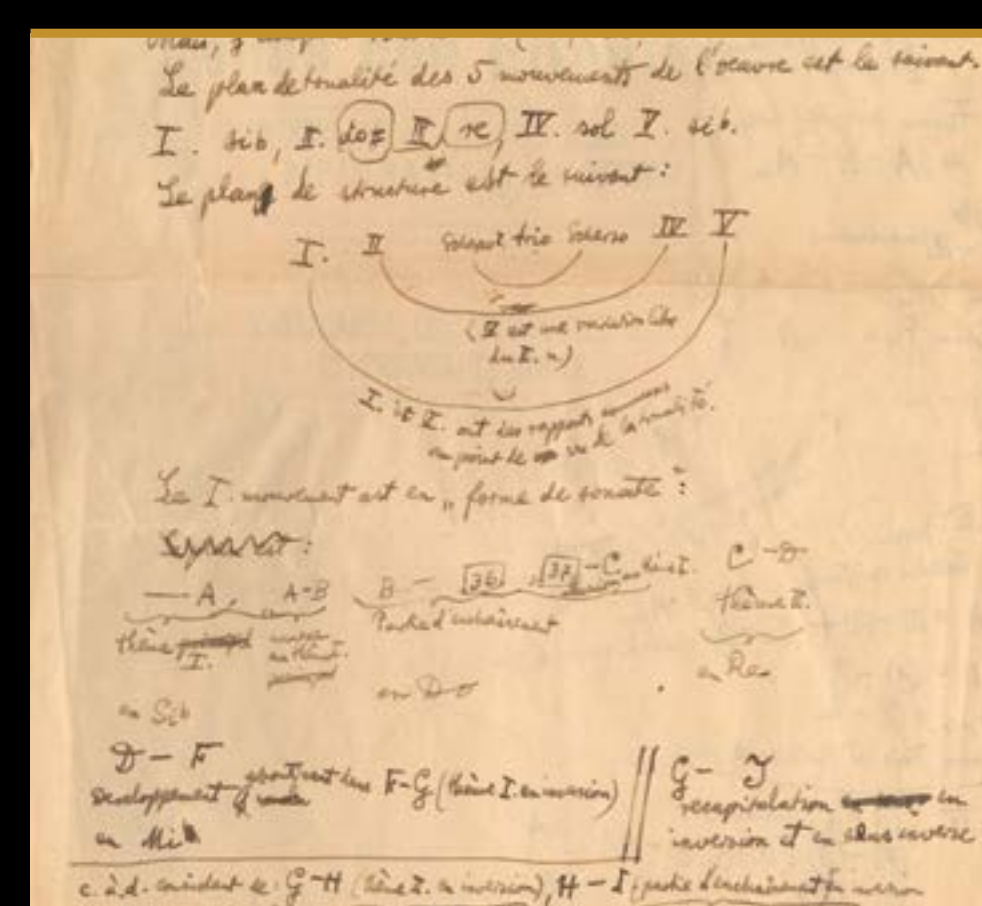 Le plan de tonalité des 5 mouvements de l'oeuvre est le suivant.
I. sib, II. do# III, re, IV. sol V. sib.
Le plan de structure est le suivant:
I. II Scherzo trio Scherzo IV V
(IV est une variation libre
du II. m)
I. et V. ont des rapports communs
en point de vu de la tonalité.
Le I. mouvement est en „forme de sonate":
— A, A-B B — 36, 37 - C C - D
thème I. Partie d'enchaînement thème II.
en Sib en Do en Re
D — F
developpement aboutissant dans F-G (thème I. en inversion)
en Mi
G — J
recapitulation en
inversion et en sens inverse
c. à. d. G-H (thème I. en inversion), H — I (partie d'enchaînement